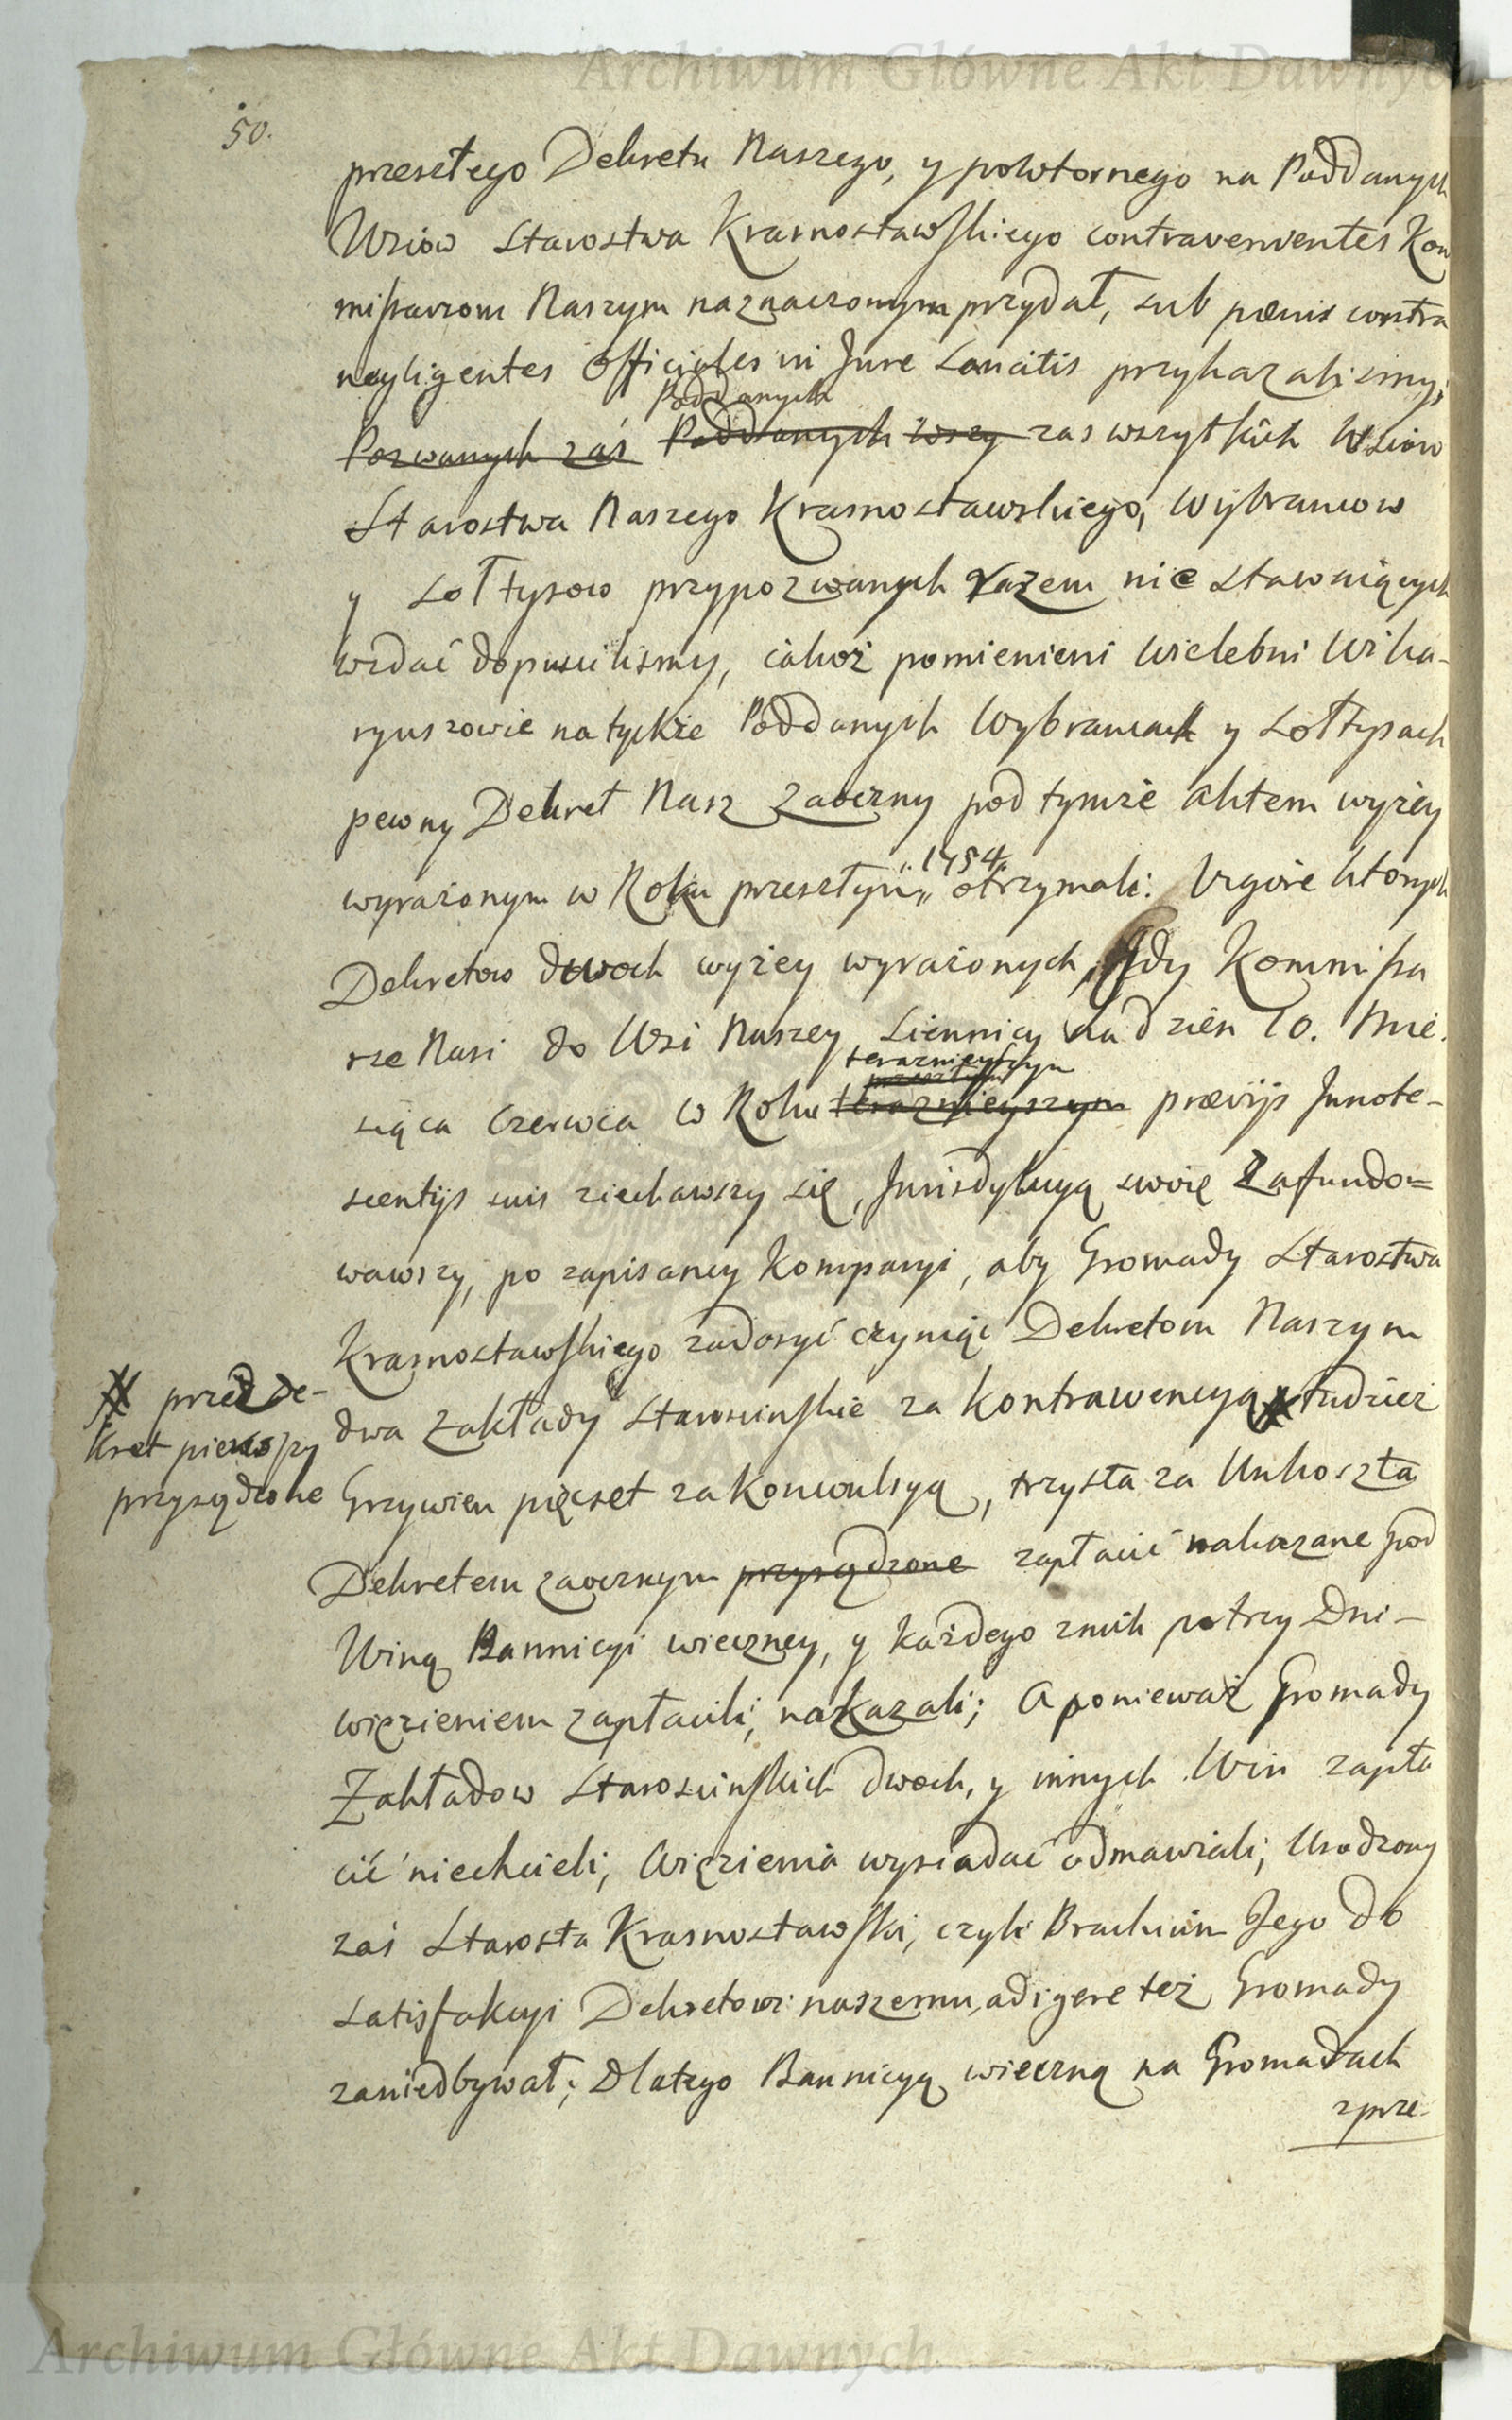 Archiwum Główne Akt Dawnych
50.
przeszłego Dekretu Naszego, y powtornego na Poddanych
Wsiow Starostwa Krasnostawskiego contravenientes Kom
missarzom Naszym naznaczonym przydał, sub pœnis contra
negligentes Officiales in Jure Sancitis przykazalismy;
Poddanych
Pozwanych zaś Poddanych wszy zas wszytkich Wsiow
Starostwa Naszego Krasnostawskiego, Wybrancow
y Sołtysow przypozwanych razem nie stawaiących
wzdać dopuscilismy, iakoż pomienieni Wielebni Wika-
ryuszowie na tychże Poddanych Wybrancach y Sołtysach
pewny Dekret Nasz zaoczny pod tymże aktem wyżey
1754
wyrażonym w Roku przeszłym otrzymali: Vigore ktorych
Dekretow dwoch wyżey wyrażonych, Gdy Kommissa
rze Nasi do Wsi Naszey Siennicy na dzien 10. Mie
teraznieyszym
przeszłym
siąca Czerwca w Roku teraznieyszym prævijs Innote-
scentijs suis ziechawszy się, Jurisdykcyą swoię zafundo=
wawszy, po zapisaney Komparyi, aby Gromady Starostwa
Krasnostawskiego zadosyć czyniąc Dekretom Naszym
dwa zakłady Starosciskie za kontrawencyą # tudzież
# przez De-
kret pierwszy
przysądzone
Grzywien pięcset za Konwulsyą, trzysta za Unkoszta
Dekretem zaocznym przysądzone zapłacić nakazane pod
Winą Bannicyi wieczney, y każdego z nich po trzy Dni-
więzieniem zapłacili, nakazali; A ponieważ Gromady
Zakładow Staroscinskich dwoch, y innych Win zapła
cić niechcieli, Więzienia wysiadać odmawiali, Urodzony
zaś Starosta Krasnostawski, czyli Brachium Jego do
satisfakcyi Dekretowi naszemu, adigere też Gromady
zaniedbywał; Dlatego Bannicyą wieczną na Gromadach
zprze-
Archiwum Główne Akt Dawnych